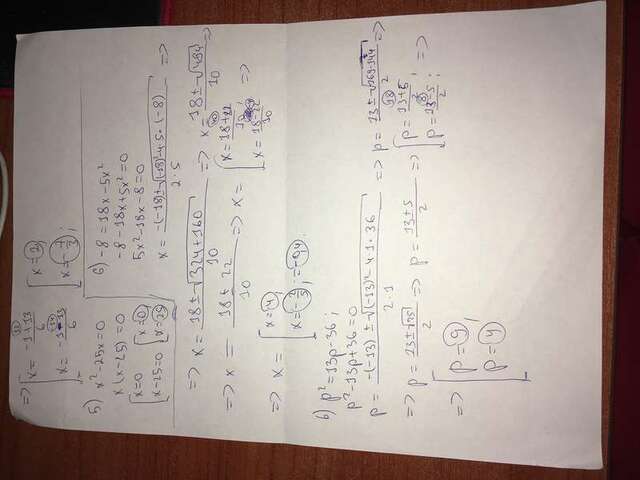 => [ x = (-1+13)/6 [ x = 2;
x = (-1-13)/6 x = -7/3;
5) x²-25x=0
x(x-25)=0
[ x=0 [ x=0
x-25=0 x=25
6) -8=18x-5x²
-8-18x+5x²=0
5x²-18x-8=0
x = (-(-18)±√((-18)²-4·5·(-8)))/(2·5) =>
=> x = (18±√(324+160))/10 => x = (18±√484)/10 =>
=> x = (18±22)/10 => x = [ x = (18+22)/10; =>
x = (18-22)/10
=> x = [ x = 4;
x = -2/5; = -0,4.
6) p²=13p-36;
p²-13p+36=0
p = (-(-13)±√((-13)²-4·1·36))/(2·1) => p = (13±√(169-144))/2 =>
=> p = (13±√25)/2 => p = (13±5)/2 => [ p = (13+5)/2; =>
p = (13-5)/2;
=> [ p = 9,
p = 4